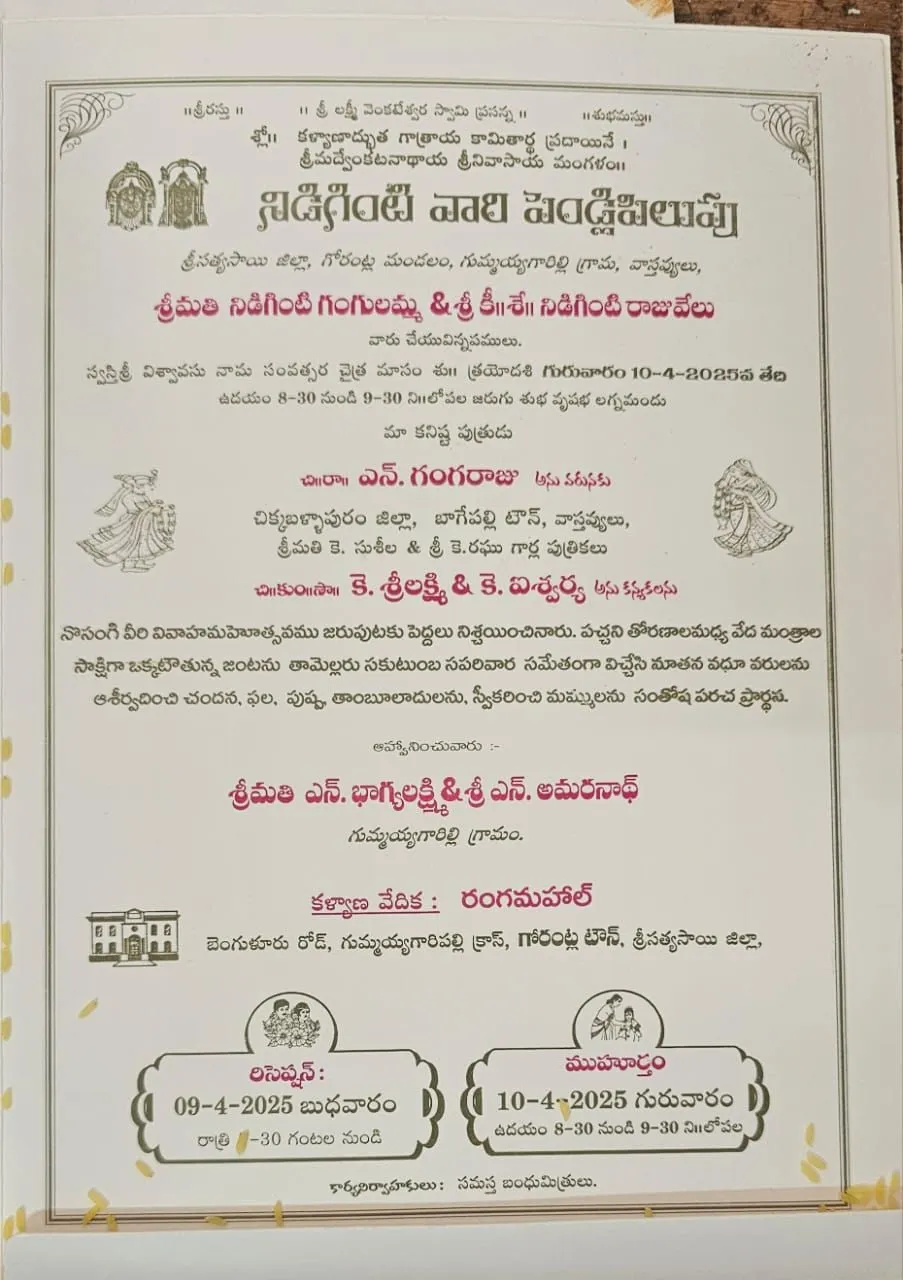 ॥శ్రీరస్తు॥ ॥ శ్రీ లక్ష్మీ వెంకటేశ్వర స్వామి ప్రసన్న ॥ ॥శుభమస్తు॥
శ్లో॥ కళ్యాణాద్భుత గాత్రాయ కామితార్థ ప్రదాయినే ।
శ్రీమద్వేంకటనాథాయ శ్రీనివాసాయ మంగళం॥
నిడిగింటి వారి పెండ్లిపిలుపు
శ్రీసత్యసాయి జిల్లా, గోరంట్ల మండలం, గుమ్మయ్యగారిల్లి గ్రామ, వాస్తవ్యులు,
శ్రీమతి నిడిగింటి గంగులమ్మ & శ్రీ కీ॥శే॥ నిడిగింటి రాజువేలు
వారు చేయువిన్నపములు.
స్వస్తిశ్రీ విశ్వావసు నామ సంవత్సర చైత్ర మాసం శు॥ త్రయోదశి గురువారం 10-4-2025వ తేది
ఉదయం 8-30 నుండి 9-30 ని॥లోపల జరుగు శుభ వృషభ లగ్నమందు
మా కనిష్ట పుత్రుడు
చి॥రా॥ ఎన్. గంగరాజు అను వరునకు
చిక్కబళ్ళాపురం జిల్లా, బాగేపల్లి టౌన్, వాస్తవ్యులు,
శ్రీమతి కె. సుశీల & శ్రీ కె.రఘు గార్ల పుత్రికలు
చి॥కుం॥సౌ॥ కె. శ్రీలక్ష్మి & కె. ఐశ్వర్య అను కన్యకలను
నొసంగి వీరి వివాహమహెూత్సవము జరుపుటకు పెద్దలు నిశ్చయించినారు. పచ్చని తోరణాలమధ్య వేద మంత్రాల
సాక్షిగా ఒక్కటౌతున్న జంటను తామెల్లరు సకుటుంబ సపరివార సమేతంగా విచ్చేసి మాతన వధూ వరులను
ఆశీర్వదించి చందన, ఫల, పుష్ప, తాంబూలాదులను, స్వీకరించి మమ్ములను సంతోష పరచ ప్రార్థన.
ఆహ్వానించువారు :-
శ్రీమతి ఎన్. భాగ్యలక్ష్మి & శ్రీ ఎన్. అమరనాథ్
గుమ్మయ్యగారిల్లి గ్రామం.
కళ్యాణ వేదిక : రంగమహాల్
బెంగుళూరు రోడ్, గుమ్మయ్యగారిపల్లి క్రాస్, గోరంట్ల టౌన్, శ్రీసత్యసాయి జిల్లా,
రిసెప్షన్ :
09-4-2025 బుధవారం
రాత్రి -30 గంటల నుండి
ముహూర్తం
10-4-2025 గురువారం
ఉదయం 8-30 నుండి 9-30 ని॥లోపల
కార్యనిర్వాహకులు : సమస్త బంధుమిత్రులు.